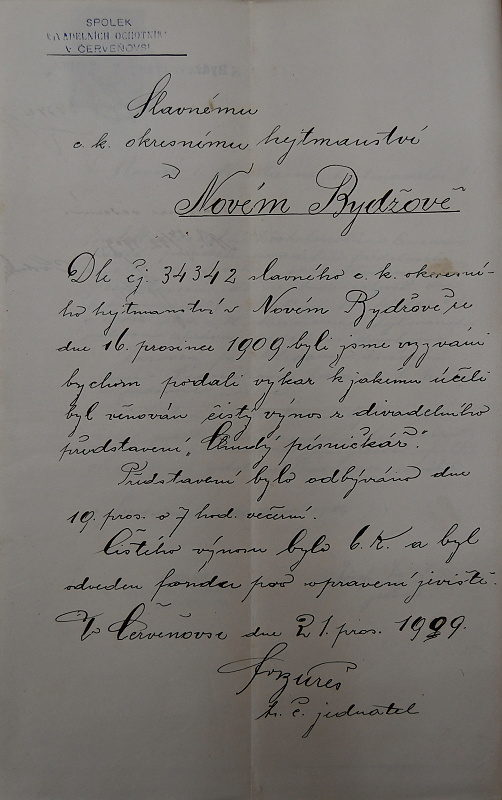 SPOLEK
DIVADELNÍCH OCHOTNÍKŮ
V ČERVEŇOVSI
Slavnému
c. k. okresnímu hejtmanství
v
Novém Bydžově
Dle čj. 34342 slavného c. k. okresní-
ho hejtmanství v Novém Bydžově ze
dne 16. prosince 1909 byli jsme vyzváni
bychom podali výkaz k jakému účeli
byl věnován čistý výnos z divadelního
představení „Chudý písničkář".
Představení bylo odbýváno dne
19. pros. o 7 hod. večerní.
Čistého výnosu bylo 6 K. a byl
odveden fondu pro opravení jeviště.
V Červeňovsi dne 21. pros. 1909.
t. č. jednatel